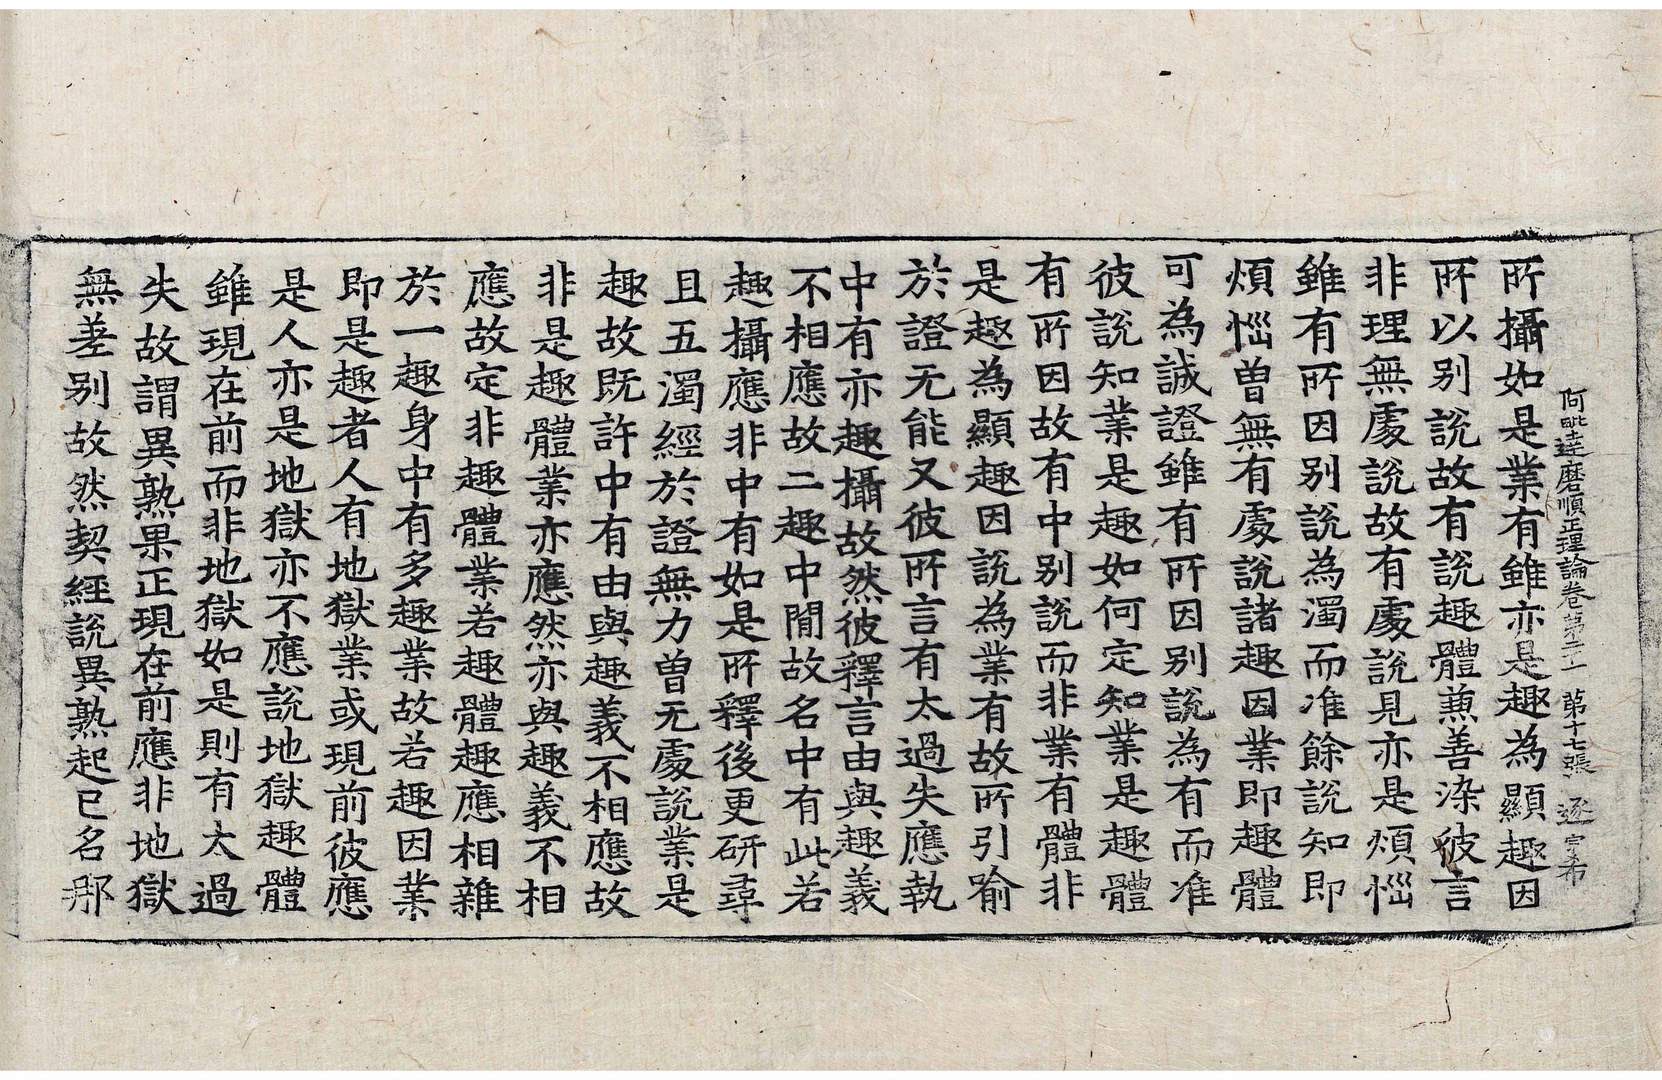 阿毗達磨順正理論卷第二十一 第十七張 逐 宗希
所攝如是業有雖亦是趣為顯趣因
所以别說故有說趣體兼善染彼言
非理無處說故有處說見亦是煩惱
雖有所因别說為濁而准餘說知即
煩惱曽無有處說諸趣因業即趣體
可為誠證雖有所因别說為有而准
彼說知業是趣如何定知業是趣體
有所因故有中别說而非業有體非
是趣為顯趣因說為業有故所引喻
於證无能又彼所言有太過失應執
中有亦趣攝故然彼釋言由與趣義
不相應故二趣中間故名中有此若
趣攝應非中有如是所釋後更研尋
且五濁經於證無力曽无處說業是
趣故既許中有由與趣義不相應故
非是趣體業亦應然亦與趣義不相
應故定非趣體業若趣體趣應相雜
於一趣身中有多趣業故若趣因業
即是趣者人有地獄業或現前彼應
是人亦是地獄亦不應說地獄趣體
雖現在前而非地獄如是則有太過
失故謂異熟果正現在前應非地獄
無差别故然契經說異熟起已名那